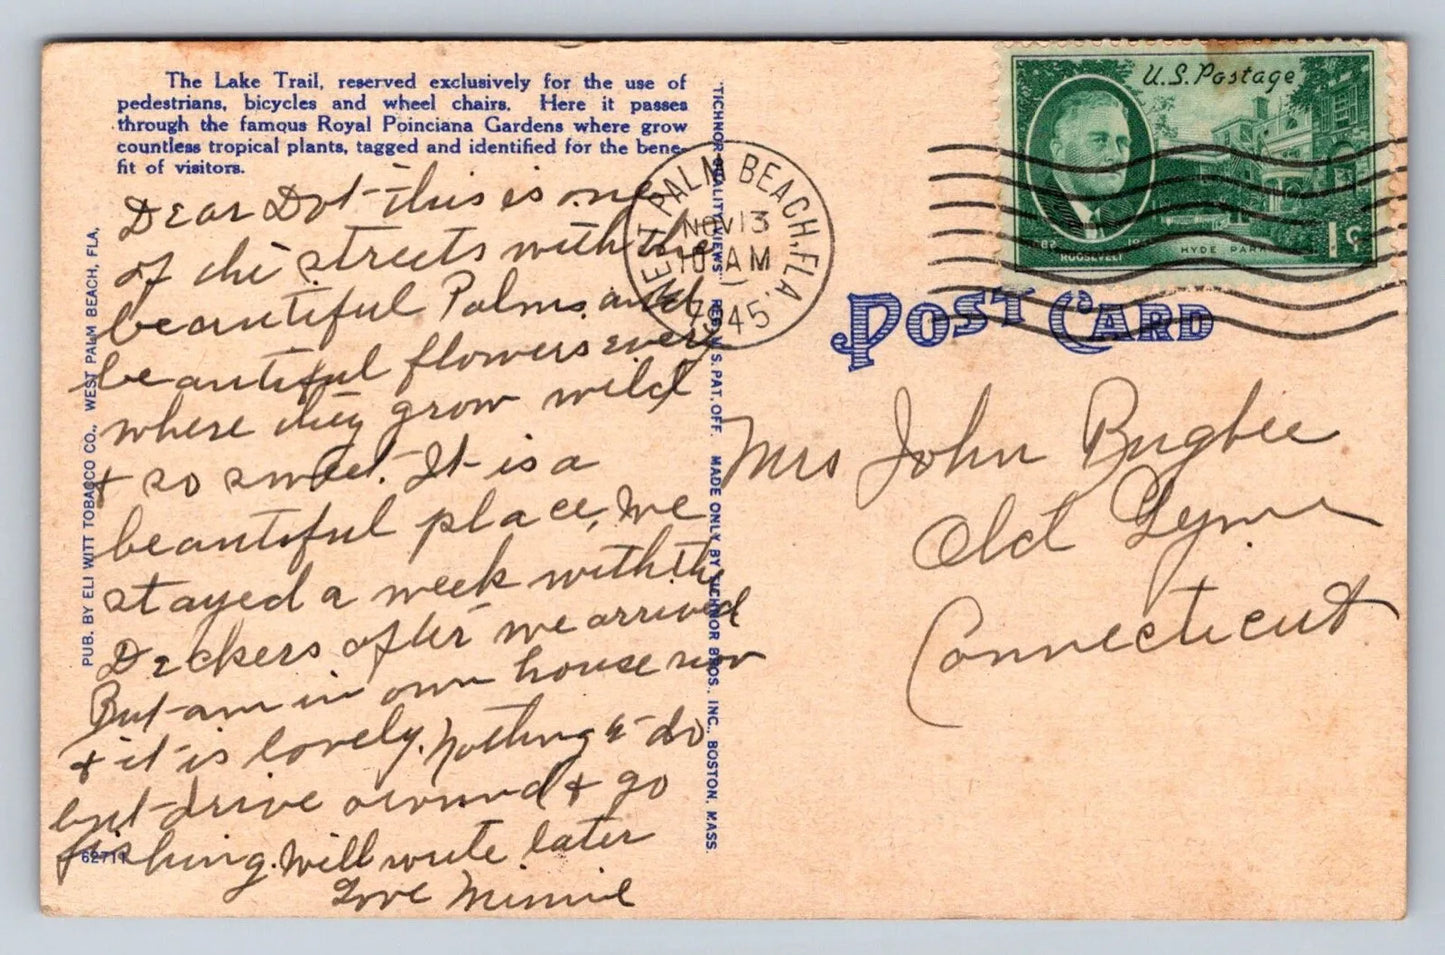 The Lake Trail, reserved exclusively for the use of
pedestrians, bicycles and wheel chairs. Here it passes
through the famous Royal Poinciana Gardens where grow
countless tropical plants, tagged and identified for the bene-
fit of visitors.
Dear Dot - this is one
of the streets with the
beautiful Palms and
beautiful flowers every
where they grow wild
+ so sweet. It is a
beautiful place, We
stayed a week with the
Deckers after we arrived
But am in own house now
+ it is lovely. Nothing to do
but drive around + go
fishing. Will write later
Love Minnie
62711
PUB. BY ELI WITT TOBACCO CO., WEST PALM BEACH, FLA.
"TICHNOR QUALITY VIEWS" REG. U. S. PAT. OFF. MADE ONLY BY TICHNOR BROS., INC., BOSTON, MASS.
WEST PALM BEACH, FLA.
NOV 13
10 AM
1945
U.S. Postage
1882 1945
ROOSEVELT
HYDE PARK
1¢
POST CARD
Mrs John Bugbee
Old Lyme
Connecticut